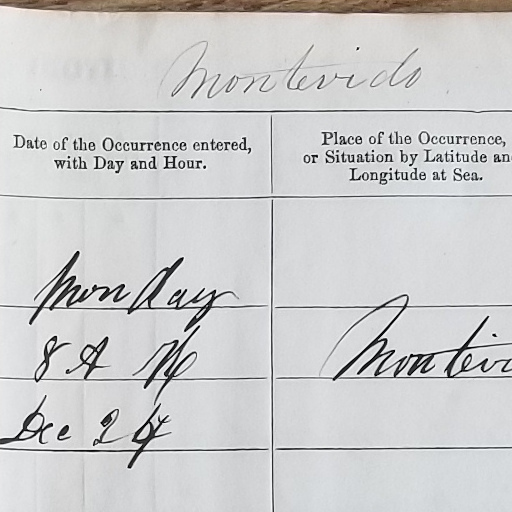 Montevido
Date of the Occurrence entered,
with Day and Hour.
Place of the Occurrence,
or Situation by Latitude an
Longitude at Sea.
Monday
8 A M
Montevi
Dec 24